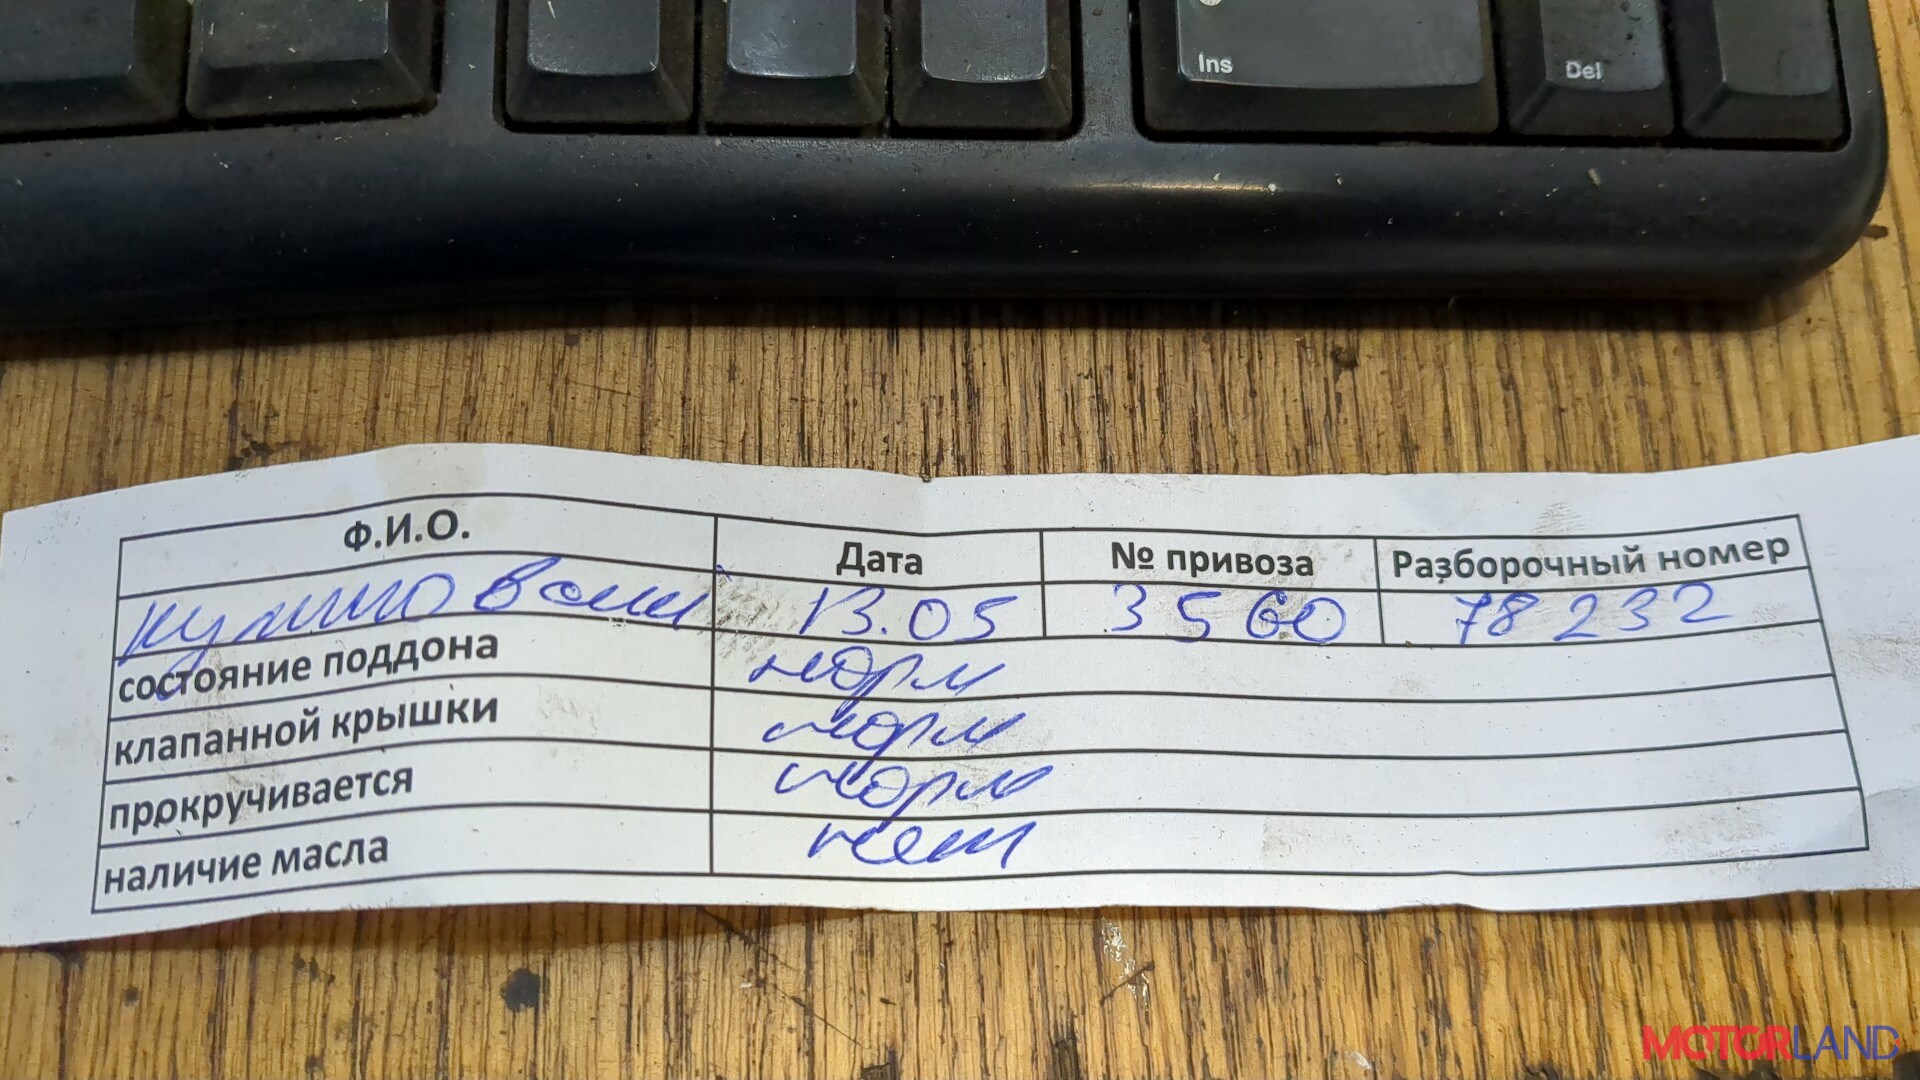 Ins Del
Ф.И.О. Дата № привоза Разборочный номер
13.05 3560 78232
состояние поддона норм
клапанной крышки норм
прокручивается норм
наличие масла нет
MOTORLAND